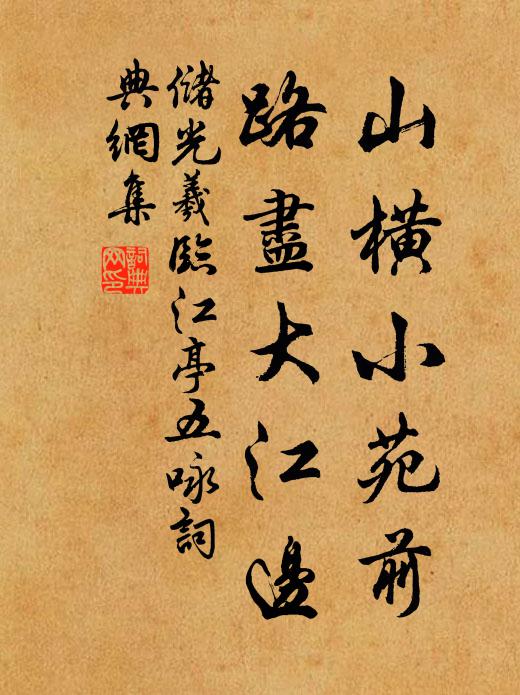 山橫小苑前
路盡大江邊
儲光羲臨江亭五咏詞
典網集
詞典網印